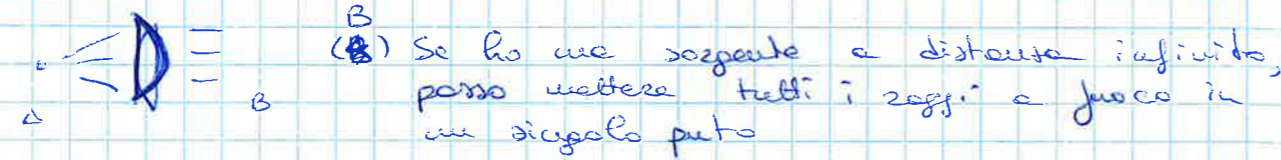 B
(B) Se ho una sorgente a distanza infinita,
posso mettere tutti i raggi a fuoco in
un singolo puto
A
B